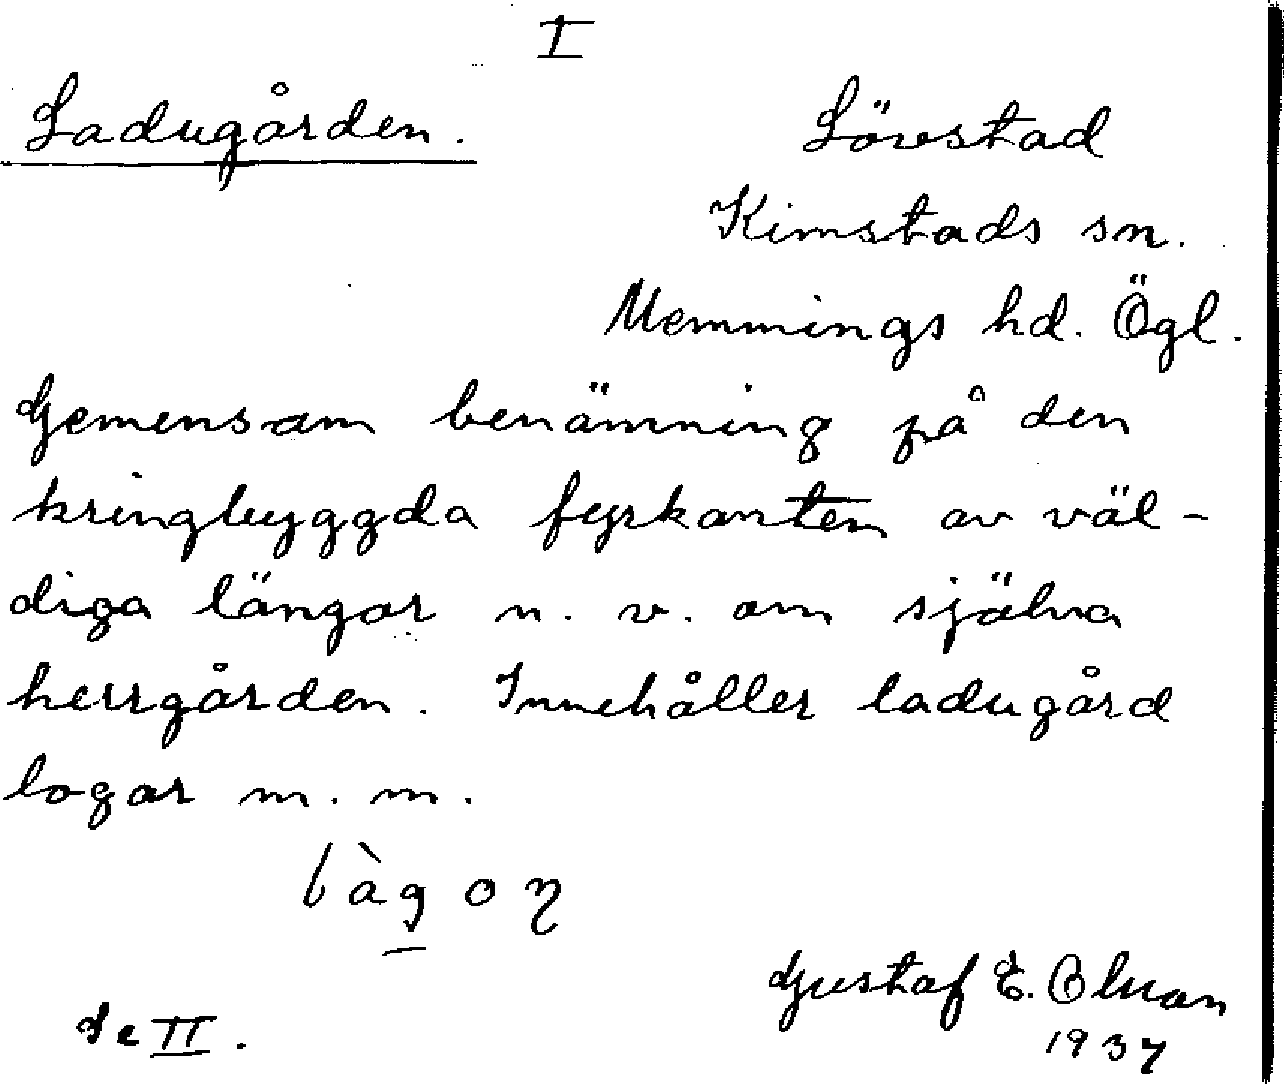 I
Ladugården.
Lövestad
Kimstads sn.
Memmings hd. Ögl.
Gemensam benämning på den
kringbyggda fyrkanten av väl-
diga längor n. v. om själva
herrgården. Innehåller ladugård
logar m. m.
làgon
Gustaf E.
1937
Se II.